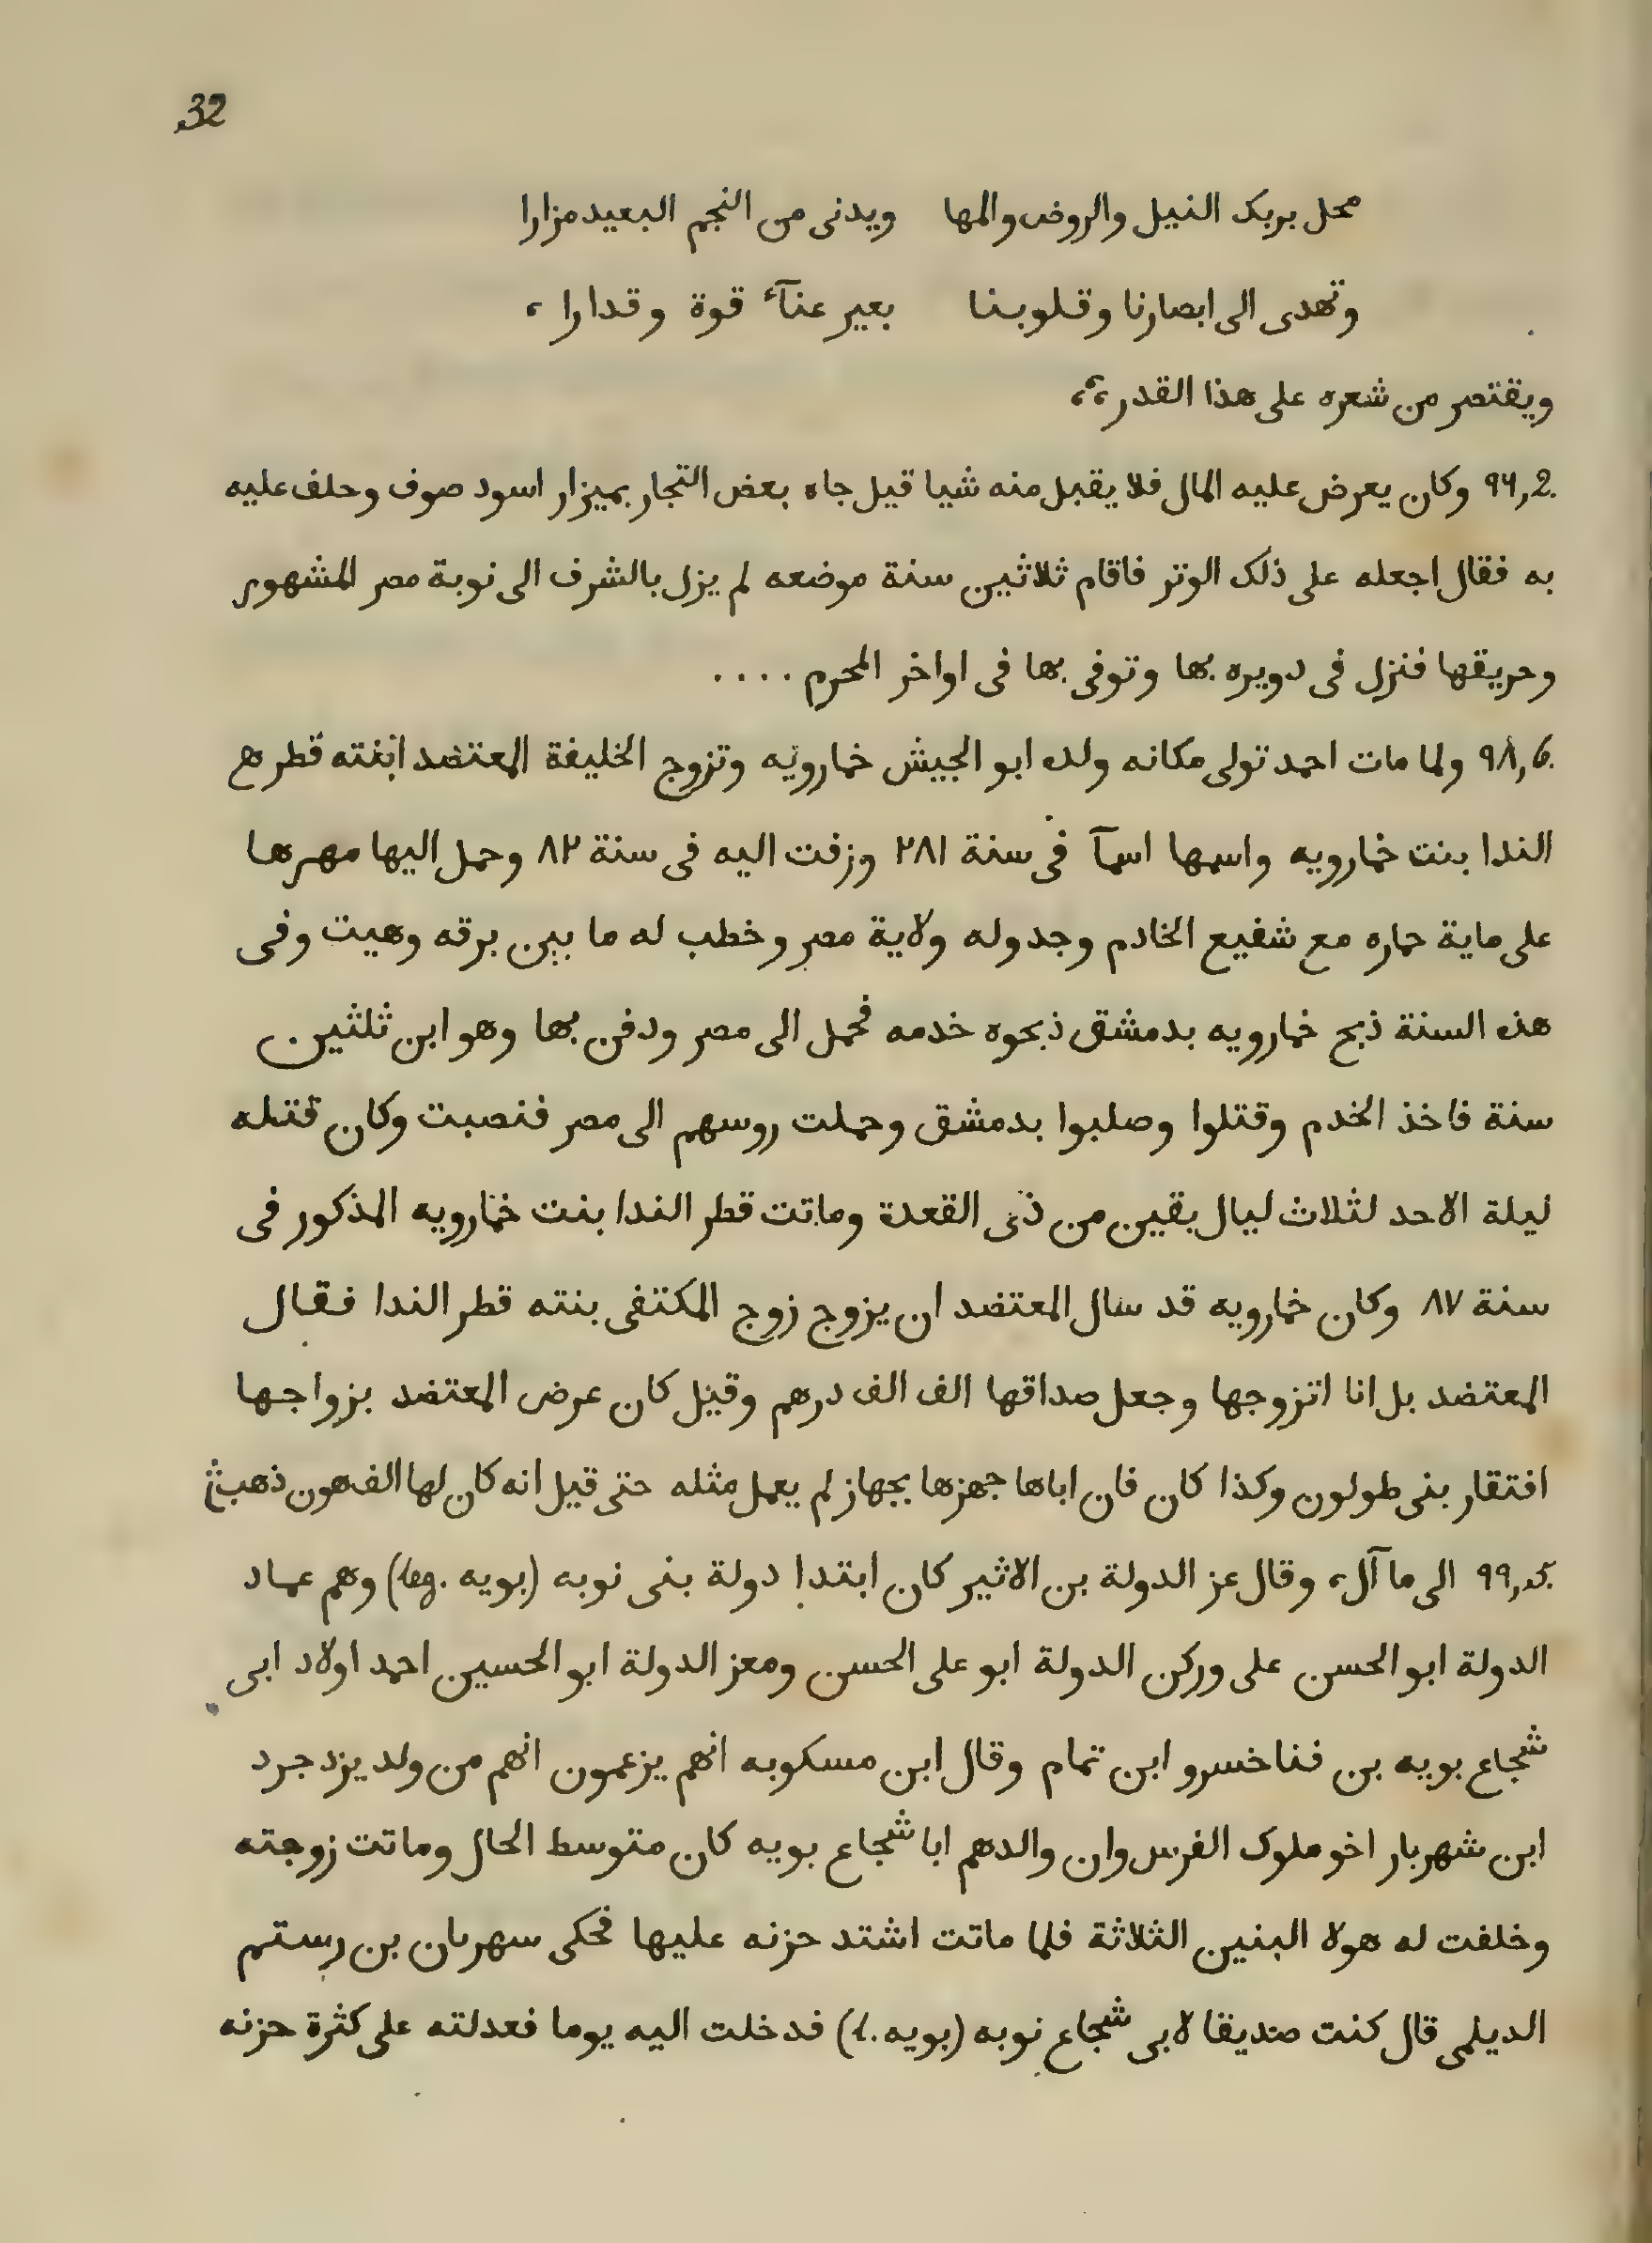 32
محل بربك النيل والروض والمها ويدنى من النجم البعيد مزارا
وتهدى الى ابصارنا وقلوبنا بعير عنآء قوة وقدارا ،
ويقتصر من شعره على هذا القدر ،،
94,2. وكان يعرض عليه المال فلا يقبل منه شيا قيل جاه بعض التجار بميزار اسود صوف وحلف عليه
به فقال اجعله على ذلك الوتر فاقام ثلاثين سنة موضعه لم يزل بالشرف الى نوبة مصر المشهور
وحريقها فنزل فى دويره بها وتوفى بها فى اواخر المحرم ....
٩٨,6. ولما مات احمد تولى مكانه ولده ابو الجيش خمارويه وتزوج الخليفة المعتضد ابنته قطر هے
الندا بنت خمارويه واسمها اسمآ فى سنة ٢٨١ وزفت اليه فى سنة ٨٢ وحمل اليها مهرها
على ماية حماره مع شفيع الخادم وجدوله ولاية مصر وخطب له ما بين برقه وهيت وفى
هذه السنة ذبح خمارويه بدمشق ذبحوه خدمه فحمل الى مصر ودفن بها وهو ابن ثلثين
سنة فاخذ الخدم وقتلوا وصلبوا بدمشق وحملت روسهم الى مصر فنصبت وكان قتله
ليلة الاحد لثلاث ليال بقين من ذى القعدة وماتت قطر الندا بنت خمارويه المذكور فى
سنة ٨٧ وكان خمارويه قد سال المعتضد ان يزوج زوج المكتفى بنته قطر الندا فقال
المعتضد بل انا اتزوجها وجعل صداقها الف الف درهم وقيل كان عرض المعتضد بزواجها
افتقار بنى طولون وكذا كان فان اباها جهزها بجهاز لم يعمل مثله حتى قيل انه كان لها الف هون ذهب
٩٩, الى ما آل، وقال عز الدولة بن الاثير كان ابتدا دولة بنى نوبه (بويه .leg) وهم عماد
الدولة ابو الحسن على وركن الدولة ابو على الحسن ومعز الدولة ابو الحسين احمد اولاد ابى
شجاع بويه بن فناخسرو ابن تمام وقال ابن مسكوبه انهم يزعمون انهم من ولد يزدجرد
ابن شهربار اخو ملوك الفرس وان والدهم ابا شجاع بويه كان متوسط الحال وماتت زوجته
وخلفت له هولا البنين الثلاثة فلما ماتت اشتد حزنه عليها فحكى سهربان بن رستم
الديلمى قال كنت صديقا لابى شجاع نوبه (بويه .l) فدخلت اليه يوما فعدلته على كثرة حزنه